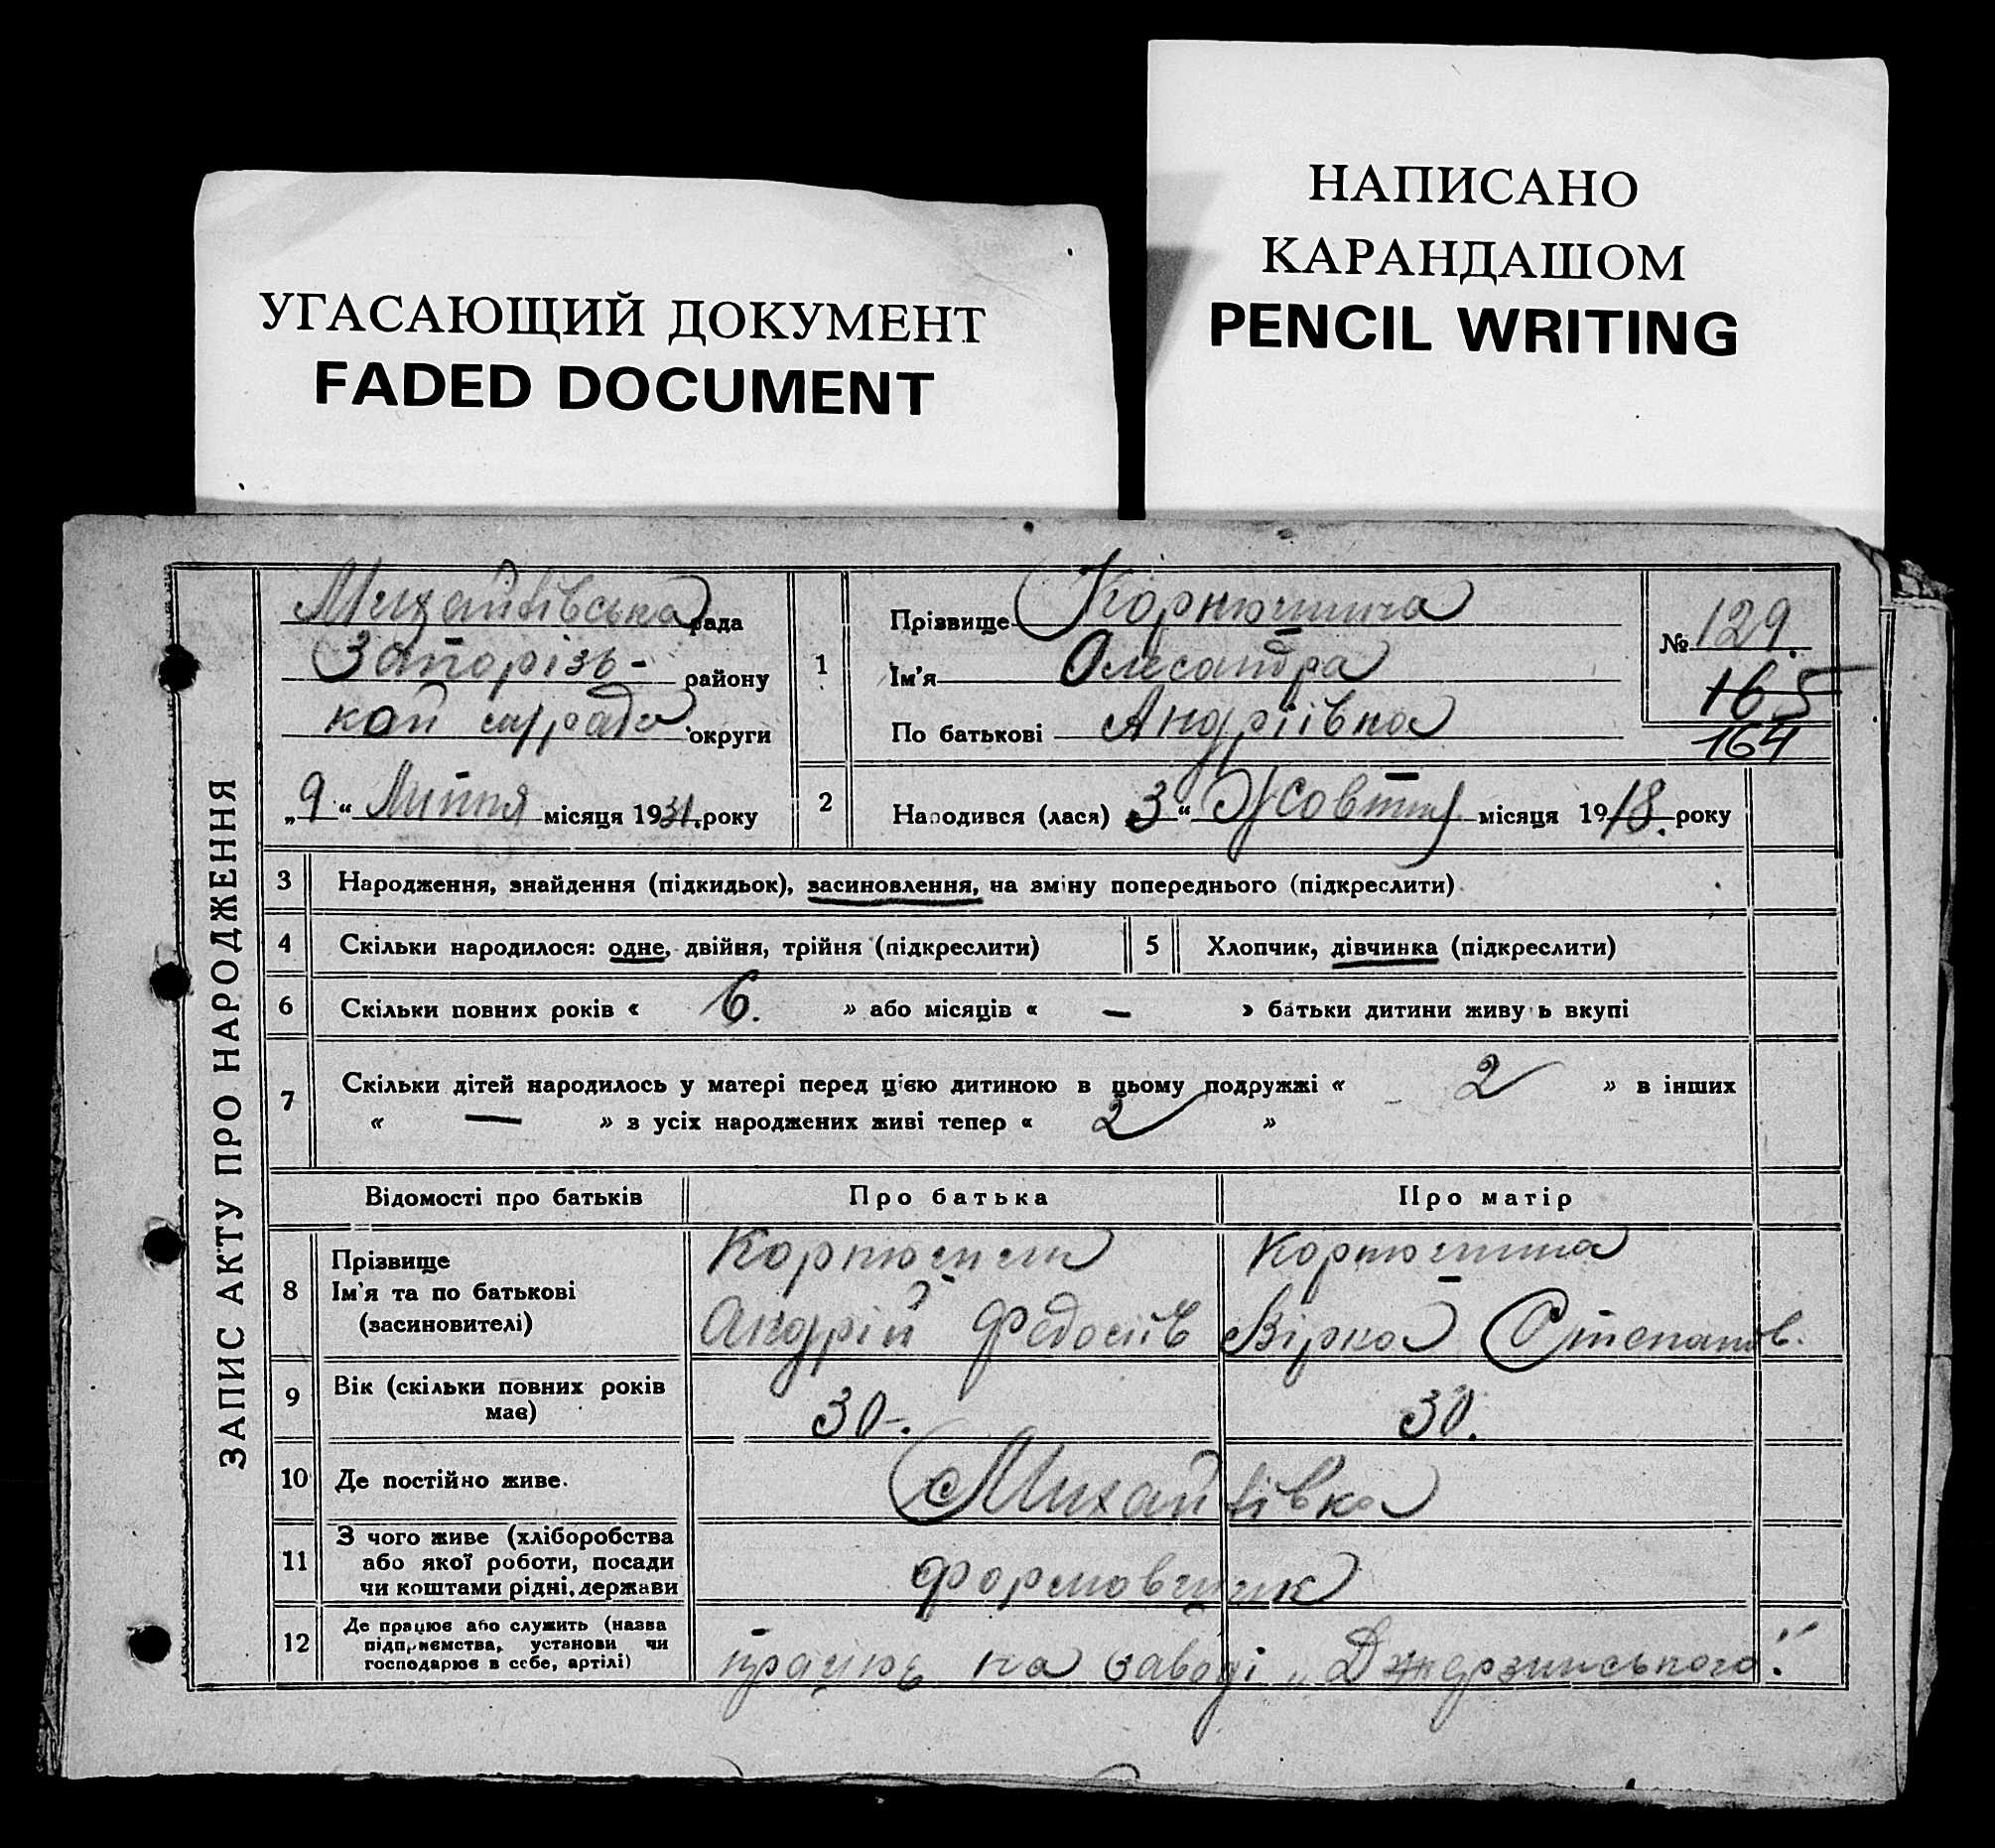 НАПИСАНО
КАРАНДАШОМ
PENCIL WRITING
УГАСАЮЩИЙ ДОКУМЕНТ
FADED DOCUMENT
ЗАПИС АКТУ ПРО НАРОДЖЕННЯ
Михайлівська рада
Запорізь- району
кой округи
„9“ Липня місяця 1931. року
1
Прізвище
Ім'я Олександра
По батькові Андріївна
№ 129.
165
164
2 Народився (лася) 3 “ Жовтня місяця 1918. року
3 Народження, знайдення (підкидьок), засиновлення, на зміну попереднього (підкреслити)
4 Скільки народилося: одне, двійня, трійня (підкреслити) 5 Хлопчик, дівчинка (підкреслити)
6 Скільки повних років « 6. » або місяців « — » батьки дитини живуть вкупі
7 Скільки дітей народилось у матері перед цією дитиною в цьому подружжі « 2 » в інших
« — » з усіх народжених живі тепер « 2 »
Відомості про батьків Про батька Про матір
8 Прізвище
Ім'я та по батькові Андрій Федосіїв Вірка Степанов.
(засиновителі)
9 Вік (скільки повних років має) 30-. 30.
10 Де постійно живе. Михайлівка
11 З чого живе (хліборобства
або якої роботи, посади
чи коштами рідні, держави Формовщик
12 Де працює або служить (назва
підприємства, установи чи
господарює в себе, артілі) працює на заводі „Джержинського“.